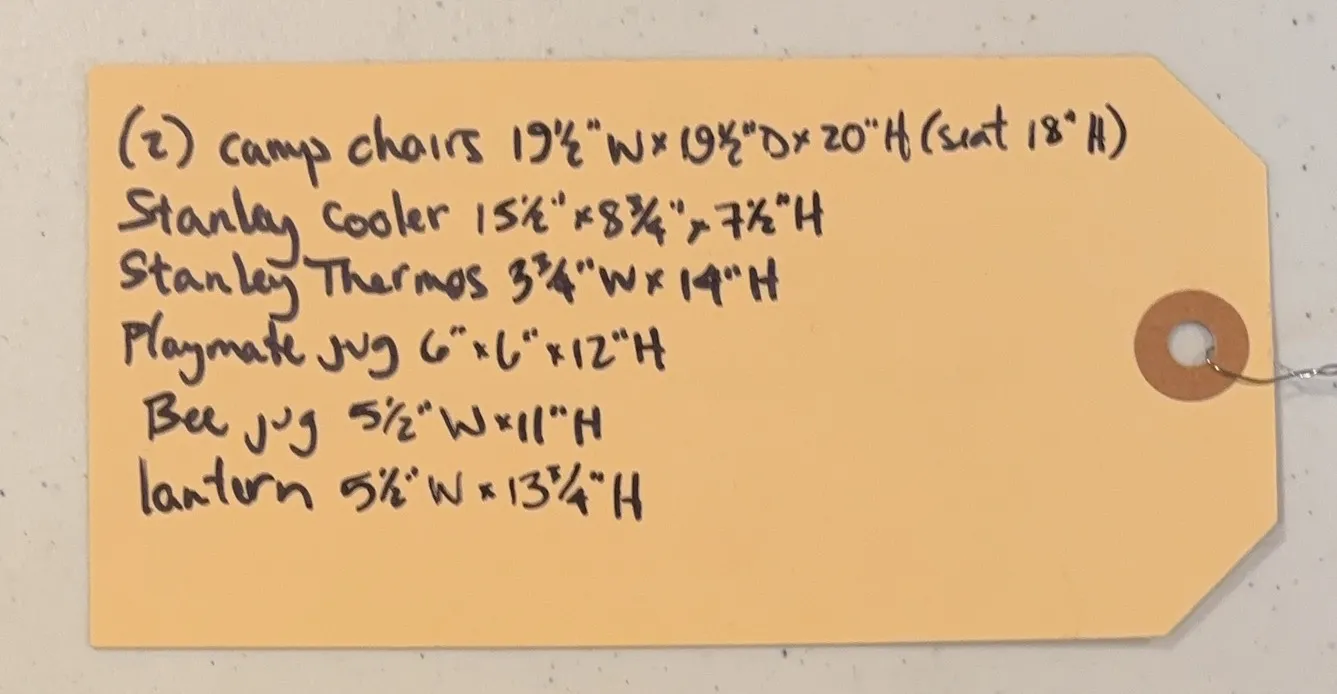 (2) camp chairs 19½"W x 19½"D x 20"H (seat 18" H)
Stanley Cooler 15½" x 8¾" x 7½"H
Stanley Thermos 3¾"W x 14"H
Playmate jug 6" x 6" x 12"H
Bee jug 5½"W x 11"H
lantern 5½"W x 13¾"H